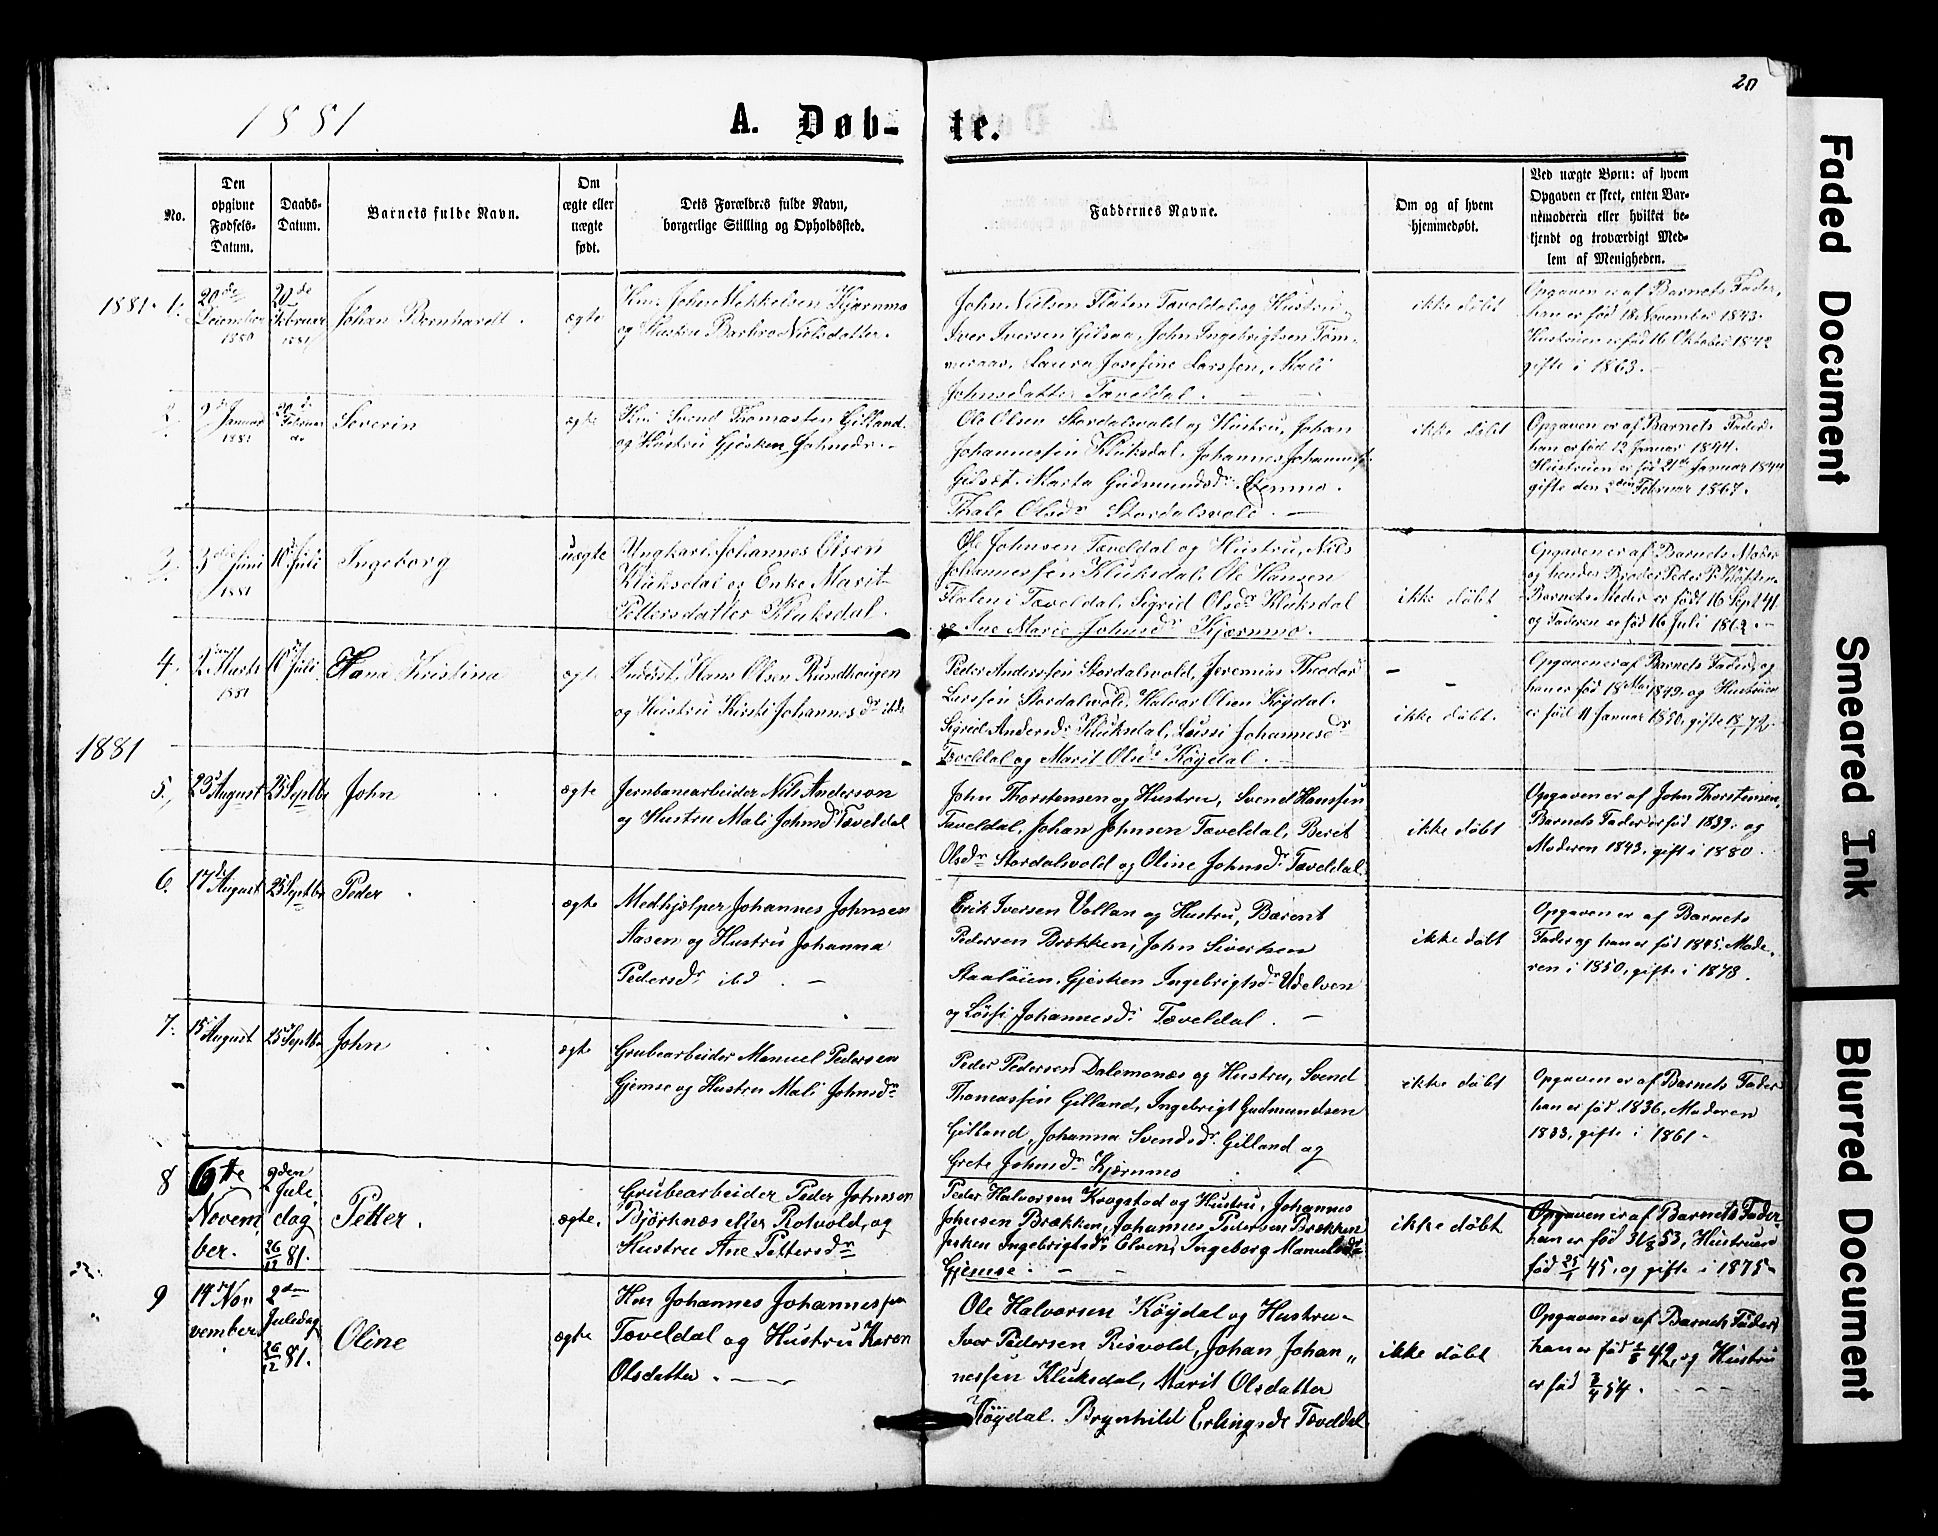 1881
A. Døb-
te.
20
No.
Den
opgivne
Fødsels-
Datum.
Daabs-
Datum.
Barnets fulde Navn.
Om
ægte eller
uægte
født.
Dets Forældres fulde Navn,
borgerlige Stilling og Opholdssted.
Faddernes Navne.
Om og af hvem
hjemmedøbt.
Ved uægte Børn: af hvem
Opgaven er skeet, enten Bar-
nemoderen eller hvilket be-
kjendt og troværdigt Med-
lem af Menigheden.
1881. 1.
20de
Desember
1880
20de
Februar
1881
Johan Bernhardt.
ægte
John Mekkelsen Kjærnmo
og Hustru Barbro Nielsdatter.
John Nielsen Flaten Tæveldal og Hustru
Iver Iversen Gilsaa, John Ingebrigtsen Tøm-
meraas, Laura Josefine Larssen, Mali
Johnsdatter Tæveldal.
ikke døbt
Opgaven er af Barnets Fader,
han er fød 18 November 1843.
Hustruen er fød 16 Oktober 1842
gifte i 1863.
2.
9de Januar
1881
20de
Februar
do
Severin
ægte
Svend Thomassen Gilland
og Hustru Gjesken Johnsdr.
Ole Olsen Stordalsvold og Hustru, Johan
Johannessen Kluksdal, Johannes Johannes
Marta Gudmundsdr
Thale Olsdr Stordalsvold.
ikke døbt
Opgaven er af Barnets Fader
han er fød 12 Januar 1844.
Hustruen er fød 21de Januar 1844
gifte den Februar 1867.
3.
3die Juni
1881
10 Juli
Ingeborg
uægte
Ungkarl Johannes Olsen
Kluksdal og Enke Marit
Pettersdatter Kluksdal.
Ole Johnsen Tæveldal og Hustru, Nils
Johannessen Kluksdal, Ole Hansen
Flaten i Tæveldal, Sigrid Olsdr Kluksdal
og Ane Marie Johnsdr Kjærnmo.
ikke døbt
Opgaven er af Barnets Moder
og hendes Broder Peder P.
Barnets Moder er født 16 Sept 41
og Faderen er fød 16 Juli 1862.
4.
2 Marts
1881
10 Juli
Hana Kristina
ægte
Inderst Hans Olsen Rundhougen
og Hustru Kirsti Johannesdr ibd
Peder Anderssen Stordalsvold, Jeremias Theodor
Larssen Stordalsvold, Halvor Olsen Køydal.
Sigrid Andersdr Kluksdal, Lussi Johannesdr
Tæveldal og Marit Olsdr Køydal.
ikke døbt.
Opgaven er af Barnets Fader og
han er fød 18 Mai 1849 og Hustruen
er fød 11 Januar 1850, gifte 72.
1881
5.
23 August
25 Septbr
John
ægte
Jernbanearbeider Nils Anderson
og Hustru Mali Johnsdr Tæveldal
John Thorstensen og Hustru, Svend Hanssen
Tæveldal, Johan Johnsen Tæveldal, Berit
Olsdr Stordalsvold og Oline Johnsdr Tæveldal
ikke døbt
Opgaven er af John Thorstensen,
Barnets Fader er fød 1839. og
Moderen 1843. gift i 1880.
6.
17 August
25 Septbr
Peder
ægte
Medhjælper Johannes Johnsen
Aasen og Hustru Johanna
Pedersdr ibd.
Erik Iversen Vollan og Hustru, Barent
Pedersen Brækken, John Sivertsen
Staaløien, Gjesken Ingebrigtsdr Udelven
og Lussi Johannesdr Tæveldal.
ikke døbt
Opgaven er af Barnets
Fader og han er fød 1845. Mode-
ren i 1850, gifte i 1878.
7.
15 August
25 Septbr
John
ægte
Grubearbeider Manuel Pedersen
Gjemse og Hustru Mali Johnsdr
Peder Pedersen Dalemonæs og Hustru, Svend
Thomassen Gilland, Ingebrigt Gudmundsen
Gilland, Johanna Svendsdr Gilland og
Grete Johnsdr Kjærnmo
ikke døbt
Opgaven er af Barnets Fader
han er fød 1836, Moderen
1833, gifte i 1861.
8
6te
Novem
ber.
2den
Jule
dag
26/12 81.
Petter.
ægte.
Grubearbeider Peder Johnson
Bjørknæs efter Rotvold, og
Hustru Ane Pettersdr
Peder Halvorsen Krogstad og Hustru, Johannes
Johnsen Brækken, Johannes Pedersen Brækken
Jesken Ingebrigtsdr Elven, Ingeborg Manuelsdt
Gjemse.
ikke døbt
Opgaven er af Barnets Fader
han er fød 53, Hustruen
fød 25/1 45, og gifte i 1875.
9
19 No-
vember
2den
Juledag
26/12 81.
Oline
ægte
Johannes Johannessen
Tæveldal og Hustru Karen
Olsdatter.
Ole Halvorsen Køydal og Hustru.
Ivar Pedersen Risvold, Johan Johan„
nessen Kluksdal, Marit Olsdatter
Køydal. Brynhild Erlingsdr Tæveldal
ikke døbt
Opgaven er af Barnets Fader
han er fød 42, og Hustru
er fød 54.
Faded Document
Smeared Ink
Blurred Document